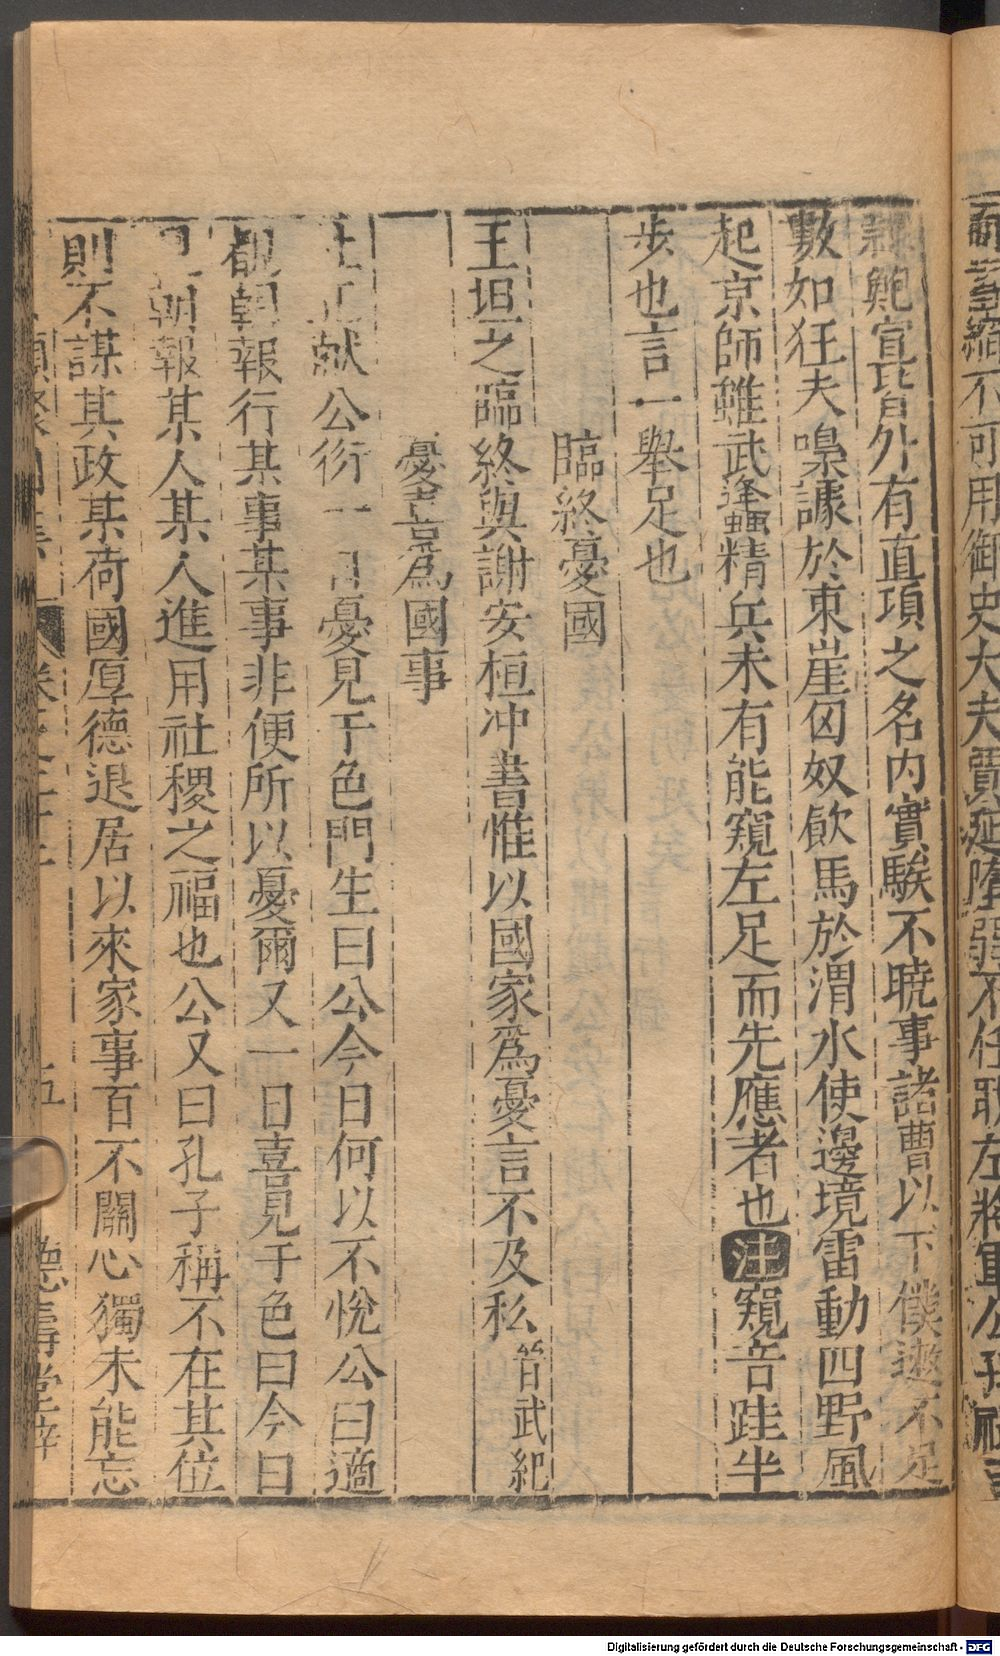 嗇蓄縮不可用御史大夫賈延墮弱不任職左將軍公孫祿司
隸鮑宣皆外有直項之名內實騃不曉事諸曹以下僕遬不足
數如狂夫嘄謼於東崖匈奴飲馬於渭水使邊境雷動四野風
起京師雖武蠭精兵未有能窺左足而先應者也注窺音跬半
步也言一舉足也
臨終憂國
王坦之臨終與謝安桓冲書惟以國家為憂言不及私 晉武紀
憂喜為國事
公衍一日憂見于色門生曰公今日何以不悅公曰適
觀朝報行某事某事非便所以憂爾又一日喜見于色曰今日
朝報某人某人進用社稷之福也公又曰孔子稱不在其位
則不謀其政某荷國厚德退居以來家事百不關心獨未能忘
五 德壽堂梓
Digitalisierung gefördert durch die Deutsche Forschungsgemeinschaft - DFG